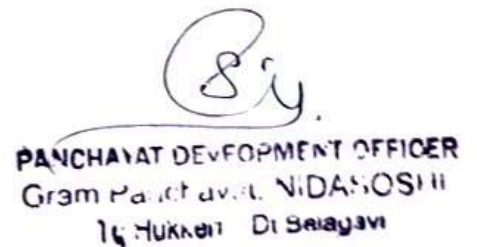 PANCHAYAT DEVFOPMENT OFFICER
Gram Panchayat, NIDASOSHI
Tq Hukkeri Di Belagavi